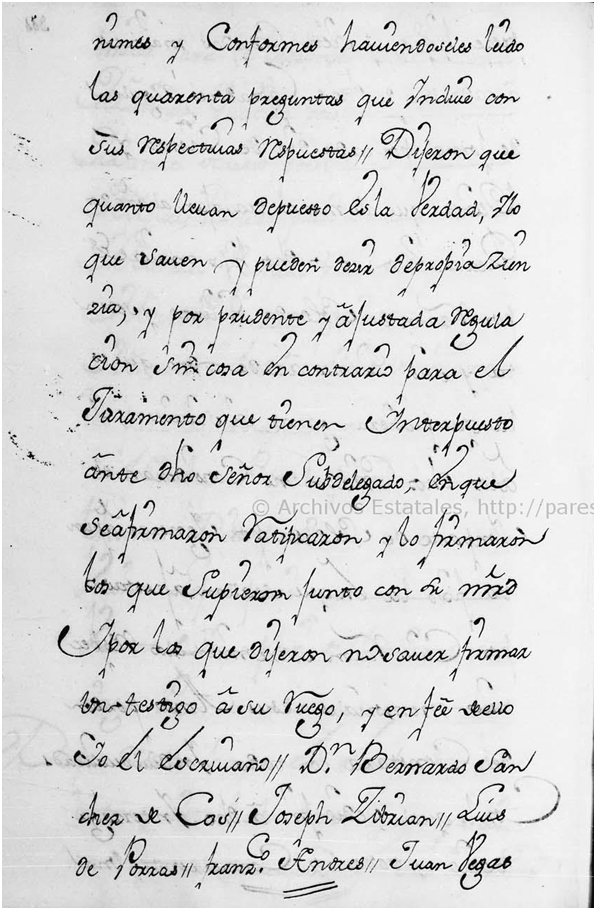 nimes y Conformes haviendoseles leido
las quarenta preguntas que Incluie con
Sus Respectivas Respuestas// Dijeron que
quanto llevan depuesto Es la Verdad, Ylo
que saven y pueden dezir de propia Zien
zia, y por prudente y ajustada Regula
cion Sin cosa en contrario para el
Juramento que tienen Interpuesto
ante dho Señor Subdelegado, en que
se afirmaron Ratificaron y lo firmaron
los que Supieron junto con su mrd
Ypor los que dijeron no saver firmar
Un testigo a su Ruego, y en feè de ello
Yo el escrivano// D.n Bernardo San
chez de Cos// Joseph Zibrian// Luis
de Porras// franz.co Andres// Juan Vegas
© Archivos Estatales, http://pares